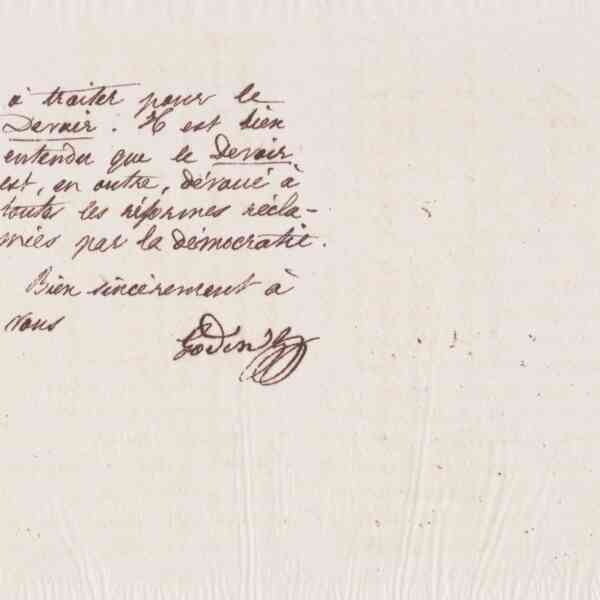 à traiter pour le
Devoir. Il est bien
entendu que le Devoir
est, en outre, dévoué à
toutes les réformes récla-
mées par la démocratie.
Bien sincèrement à
vous
Godin